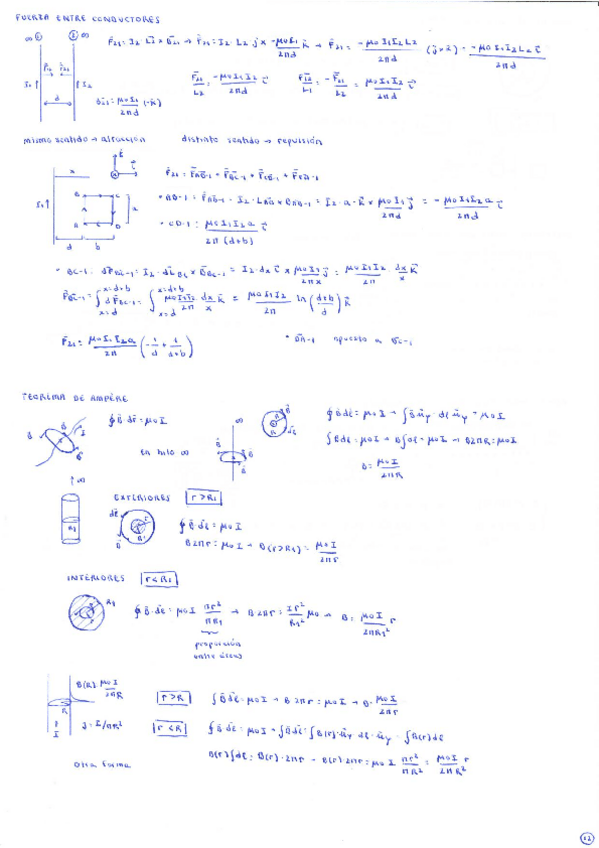 FUERZA ENTRE CONDUCTORES
∞ ① ② ∞
F̄₂₁ = I₂ L̄₂ × B̄₂₁ → F̄₂₁ = I₂ L₂ j̄ × -μ₀I₁/2πd k̄ → F̄₂₁ = -μ₀ I₁ I₂ L₂/2πd (j̄ × k̄) = -μ₀ I₁ I₂ L₂ ī/2πd
I₁ d I₂
F̄₂₁/L₂ = -μ₀ I₁ I₂/2πd ī F̄₁₂/L₁ = -F̄₂₁/L₂ = μ₀ I₁ I₂/2πd ī
B̄₂₁ = μ₀ I₁/2πd (-k̄)
mismo sentido → atracción distinto sentido → repulsión
F̄₂₁ = F̄AB-1 + F̄BC-1 + F̄CD-1 + F̄DA-1
I₁ x B C A D a d b
• CD-1 = μ₀ I₁ I₂ a/2π(d+b) ī
• BC-1: dF̄BC-1 = I₂ · dL̄BC × B̄BC-1 = I₂ · dx ī × μ₀ I₁/2πx j̄ = μ₀ I₁ I₂/2π · dx/x k̄
F̄BC-1 = ∫ dF̄BC-1 = ∫ μ₀ I₁ I₂/2π dx/x k̄ = μ₀ I₁ I₂/2π ln((d+b)/d) k̄
x=d x=d+b
F̄₂₁ = μ₀ I₁ I₂ a/2π (-1/d + 1/(d+b))
TEOREMA DE AMPÈRE
∮ B̄ · dl̄ = μ₀ I
en hilo ∞
∮ B̄ dl̄ = μ₀ I → ∫ B ūy · dl ūy = μ₀ I
∫ B dl = μ₀ I → B ∫ dl = μ₀ I → B 2πR = μ₀ I
B = μ₀ I/2πR
EXTERIORES r > R₁
∮ B̄ dl̄ = μ₀ I
B 2πr = μ₀ I → B(r > R₁) = μ₀ I/2πr
INTERIORES r < R₁
∮ B̄ · dl̄ = μ₀ I πr²/πR₁² → B · 2πr = I r²/R₁² μ₀ → B = μ₀ I/2πR₁² r
proporción
entre áreas
B(R) μ₀ I/2πR
r > R ∫ B̄ dl̄ = μ₀ I → B 2πr = μ₀ I → B = μ₀ I/2πr
j = I/πR²
r < R ∮ B̄ dl̄ = μ₀ I → ∫ B̄ dl̄ = ∫ B(r) · ūy dl · ūy = ∫ B(r) dl
B(r) ∫ dl = B(r) · 2πr → B(r) · 2πr = μ₀ I πr²/πR² = μ₀ I/2πR² r
otra forma
12